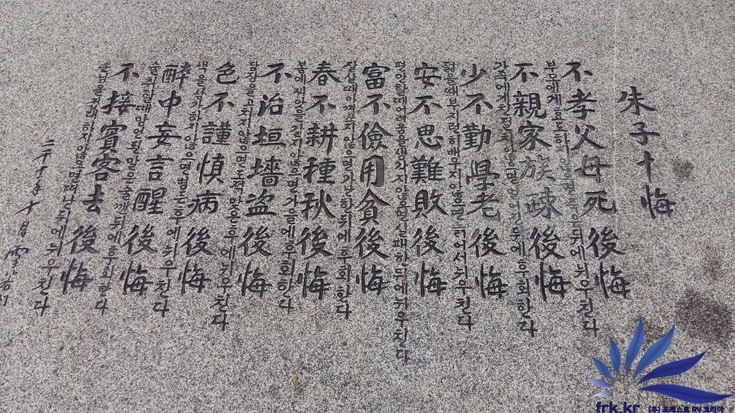 朱子十悔
不孝父母死後悔
부모에게 효도하지 않으면 죽은 뒤에 뉘우친다
不親家族疎後悔
가족에게 친절치 않으면 멀어진 뒤에 후회한다
少不勤學老後悔
젊을때 부지런히 배우지 않으면 늙어서 뉘우친다
安不思難敗後悔
편안할때 어려움을 생각지 않으면 실패한 뒤에 뉘우친다
富不儉用貧後悔
잘살때 아껴쓰지 않으면 가난한 뒤에 후회한다
春不耕種秋後悔
봄에 씨앗을 뿌리지 않으면 가을에 후회한다
不治垣墻盜後悔
담장을 고치지 않으면 도적 맞은 후에 뉘우친다
色不謹愼病後悔
색을 삼가하지 않으면 병든 후에 뉘우친다
醉中妄言醒後悔
술취할때 망언된 말은 술깬 뒤에 후회한다
不接賓客去後悔
손님을 접대하지 않으면 떠난 뒤에 뉘우친다
十月
frk.kr
(주) 포레스트 RV 코리아